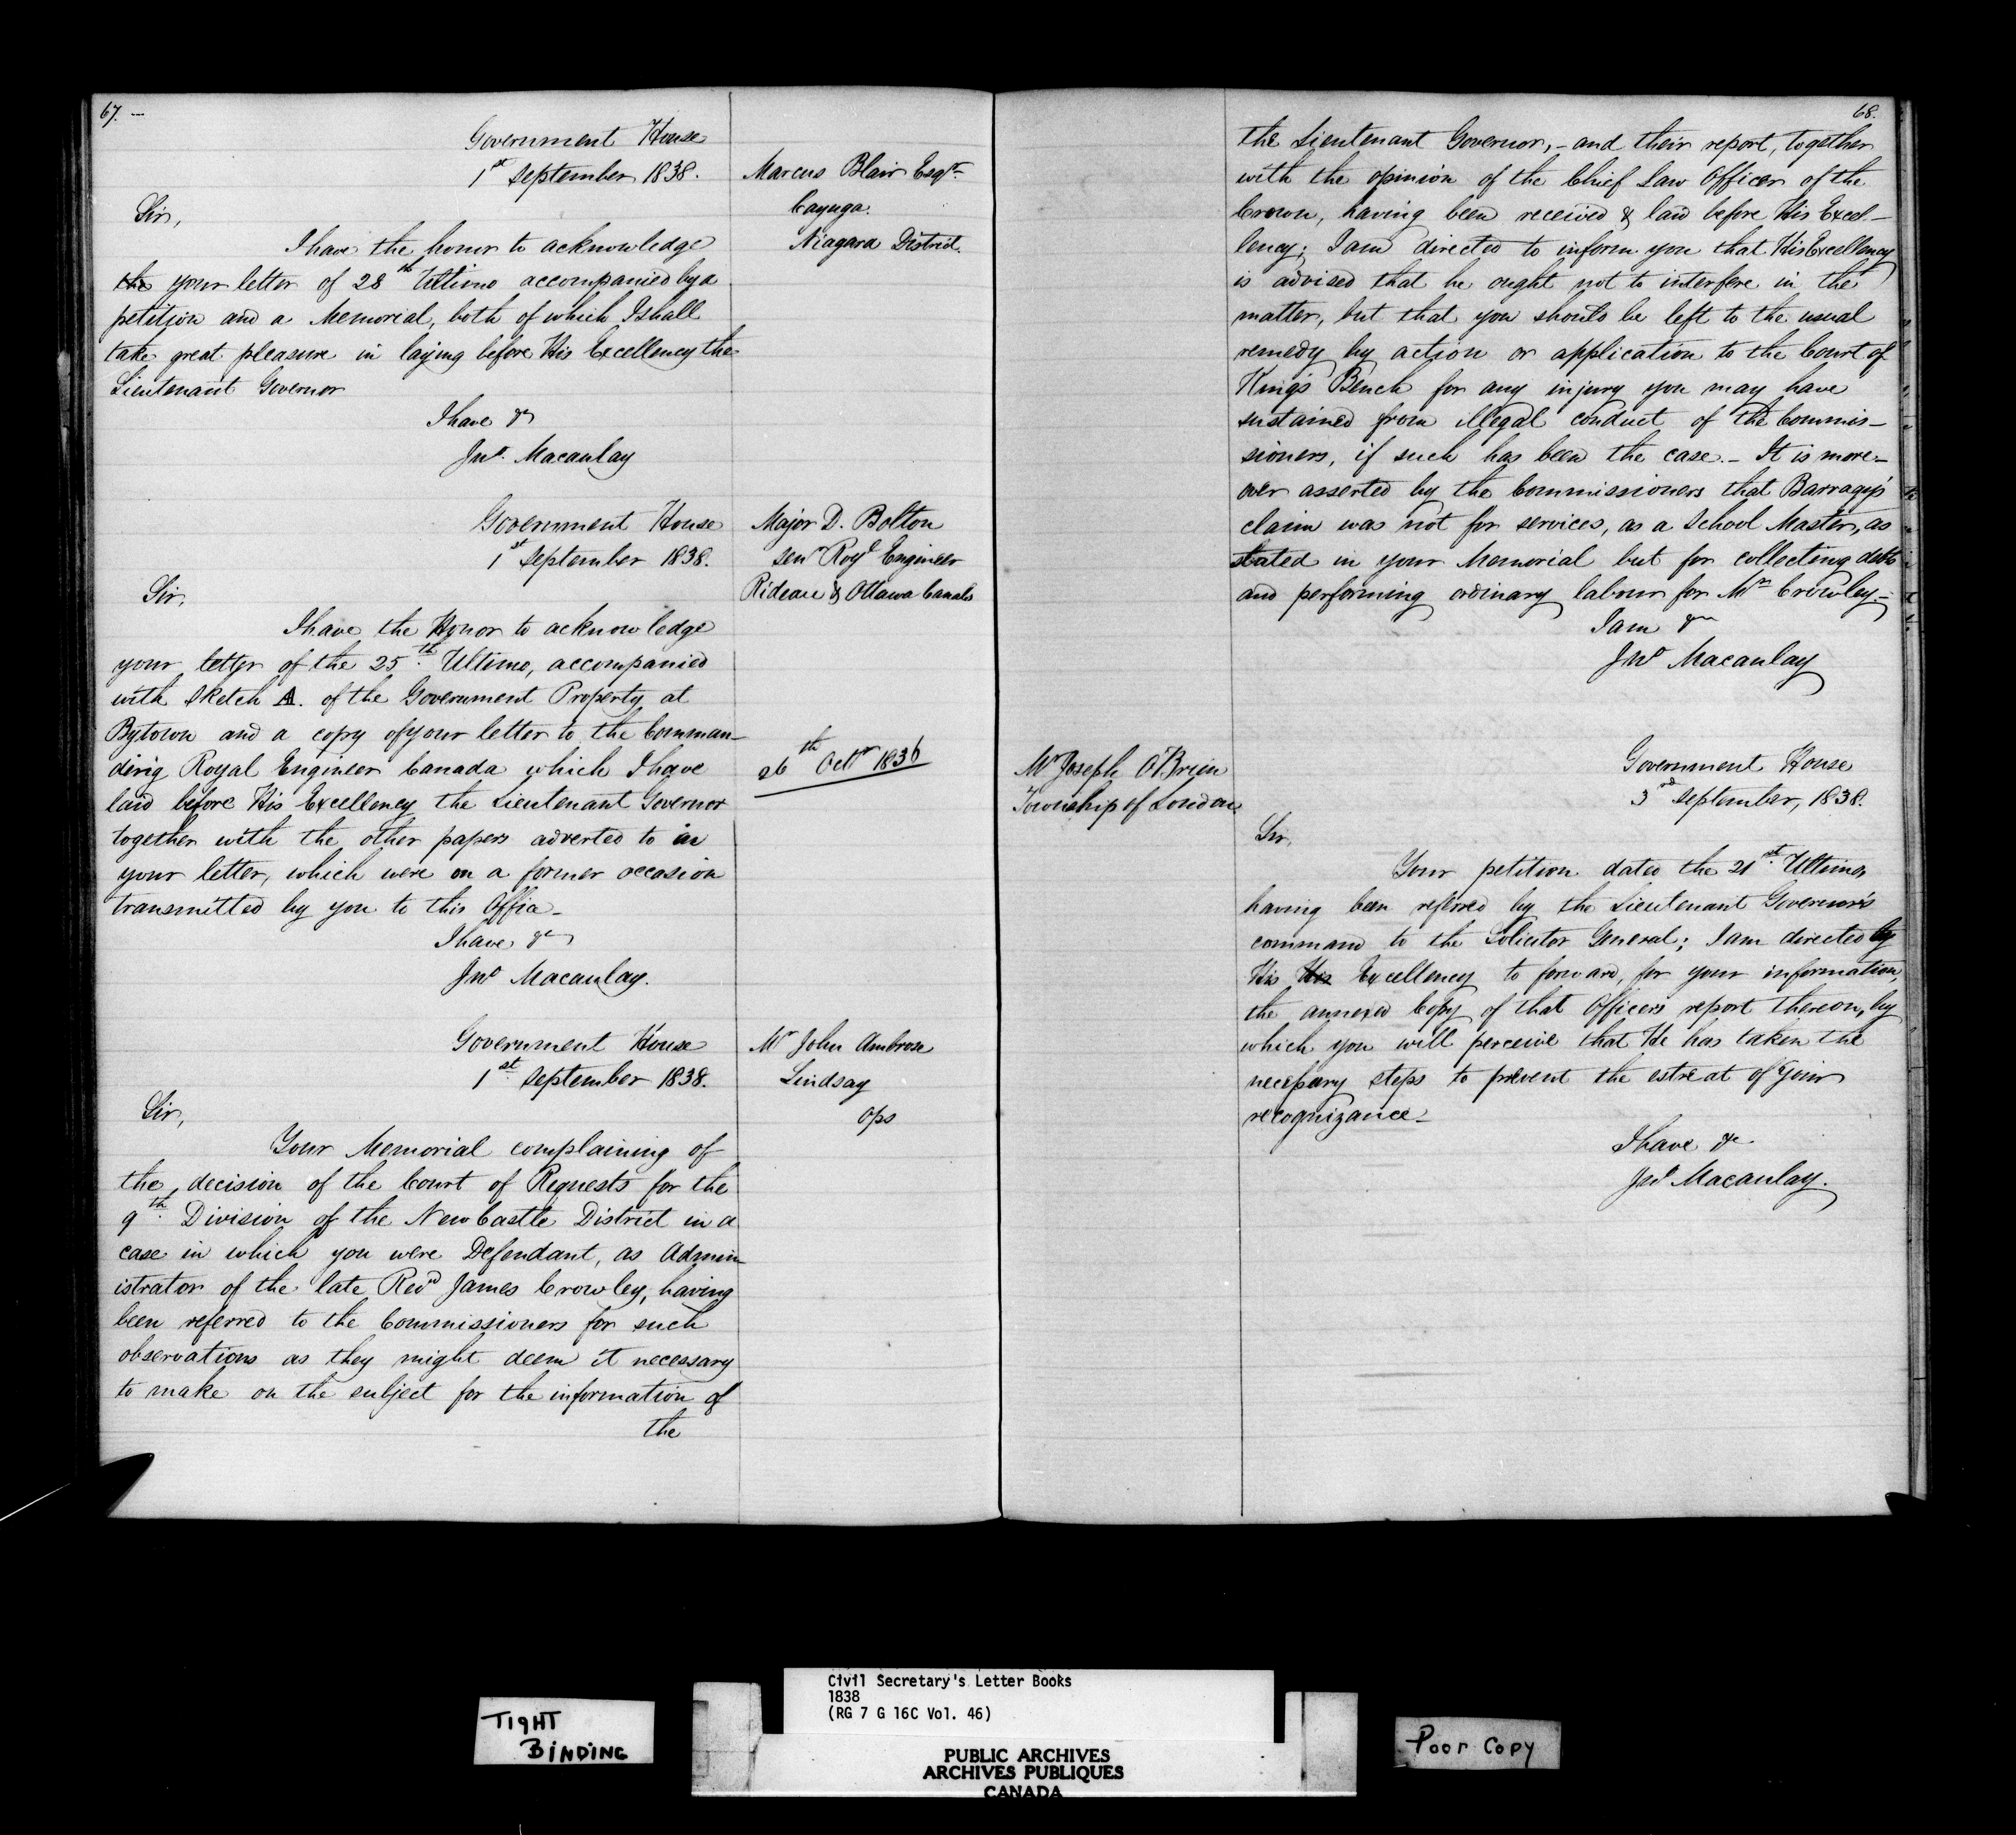 67. —
Government House
1st September 1838.
Marcus Blair Esqr.
Cayuga.
Niagara District.
Sir,
I have the honor to acknowledge
the your letter of 28th Ultimo accompanied by a
petition and a Memorial, both of which I shall
take great pleasure in laying before His Excellency the
Lieutenant Governor
I have &c
Jno. Macaulay
Government House
1st September 1838.
Major D. Bolton
Senr Royl Engineer
Rideau & Ottawa Canals
Sir,
I have the Honor to acknowledge
your letter of the 25th. Ultimo, accompanied
with Sketch A. of the Government Property at
Bytown and a copy of your letter to the Comman-
dirig Royal Engineer Canada which I have
laid before His Excellency the Lieutenant Governor
together with the other papers adverted to in
your letter, which were on a former occasion
transmitted by you to this Office_
26th Octr 1836
I have &c
Jno Macaulay.
Government House
1st September 1838.
Mr John Ambrose
Lindsay
Ops
Sir,
Your Memorial complaining of
the decision of the Court of Requests for the
9th. Division of the New Castle District in a
case in which you were Defendant, as Admin-
istrator of the late Revd James Crowley, having
been referred to the Commissioners for such
observations as they might deem it necessary
to make on the subject for the information of
the
68.
the Lieutenant Governor,- and their report, together
with the opinion of the Chief Law Officer of the
Crown, having been received & laid before His Excel-
lency; I am directed to inform you that His Excellency
is advised that he ought not to interfere in the
matter, but that you should be left to the usual
remedy by action or application to the Court of
King's Bench for any injury you may have
sustained from illegal conduct of the Commis-
sioners, if such has been the case.- It is more-
over asserted by the Commissioners that Barragy's
claim was not for services, as a School Master, as
stated in your Memorial but for collecting debts
and performing ordinary labour for Mr Crowley.-
I am &c
Jno Macaulay
Mr Joseph O'Brien
Township of London
Government House
3rd September, 1838.
Sir,
Your petition dated the 21st. Ultimo,
having been referred by the Lieutenant Governor's
command to the Solicitor General; I am directed by
His His Excellency to forward, for your information,
the annexed Copy of that Officers report thereon, by
which you will perceive that He has taken the
necessary steps to prevent the estreat of your
recognizance_
I have &c
Jno Macaulay.
TIGHT
BINDING
Civil Secretary's Letter Books
1838
(RG 7 G 16C Vol. 46)
PUBLIC ARCHIVES
ARCHIVES PUBLIQUES
CANADA
Poor Copy